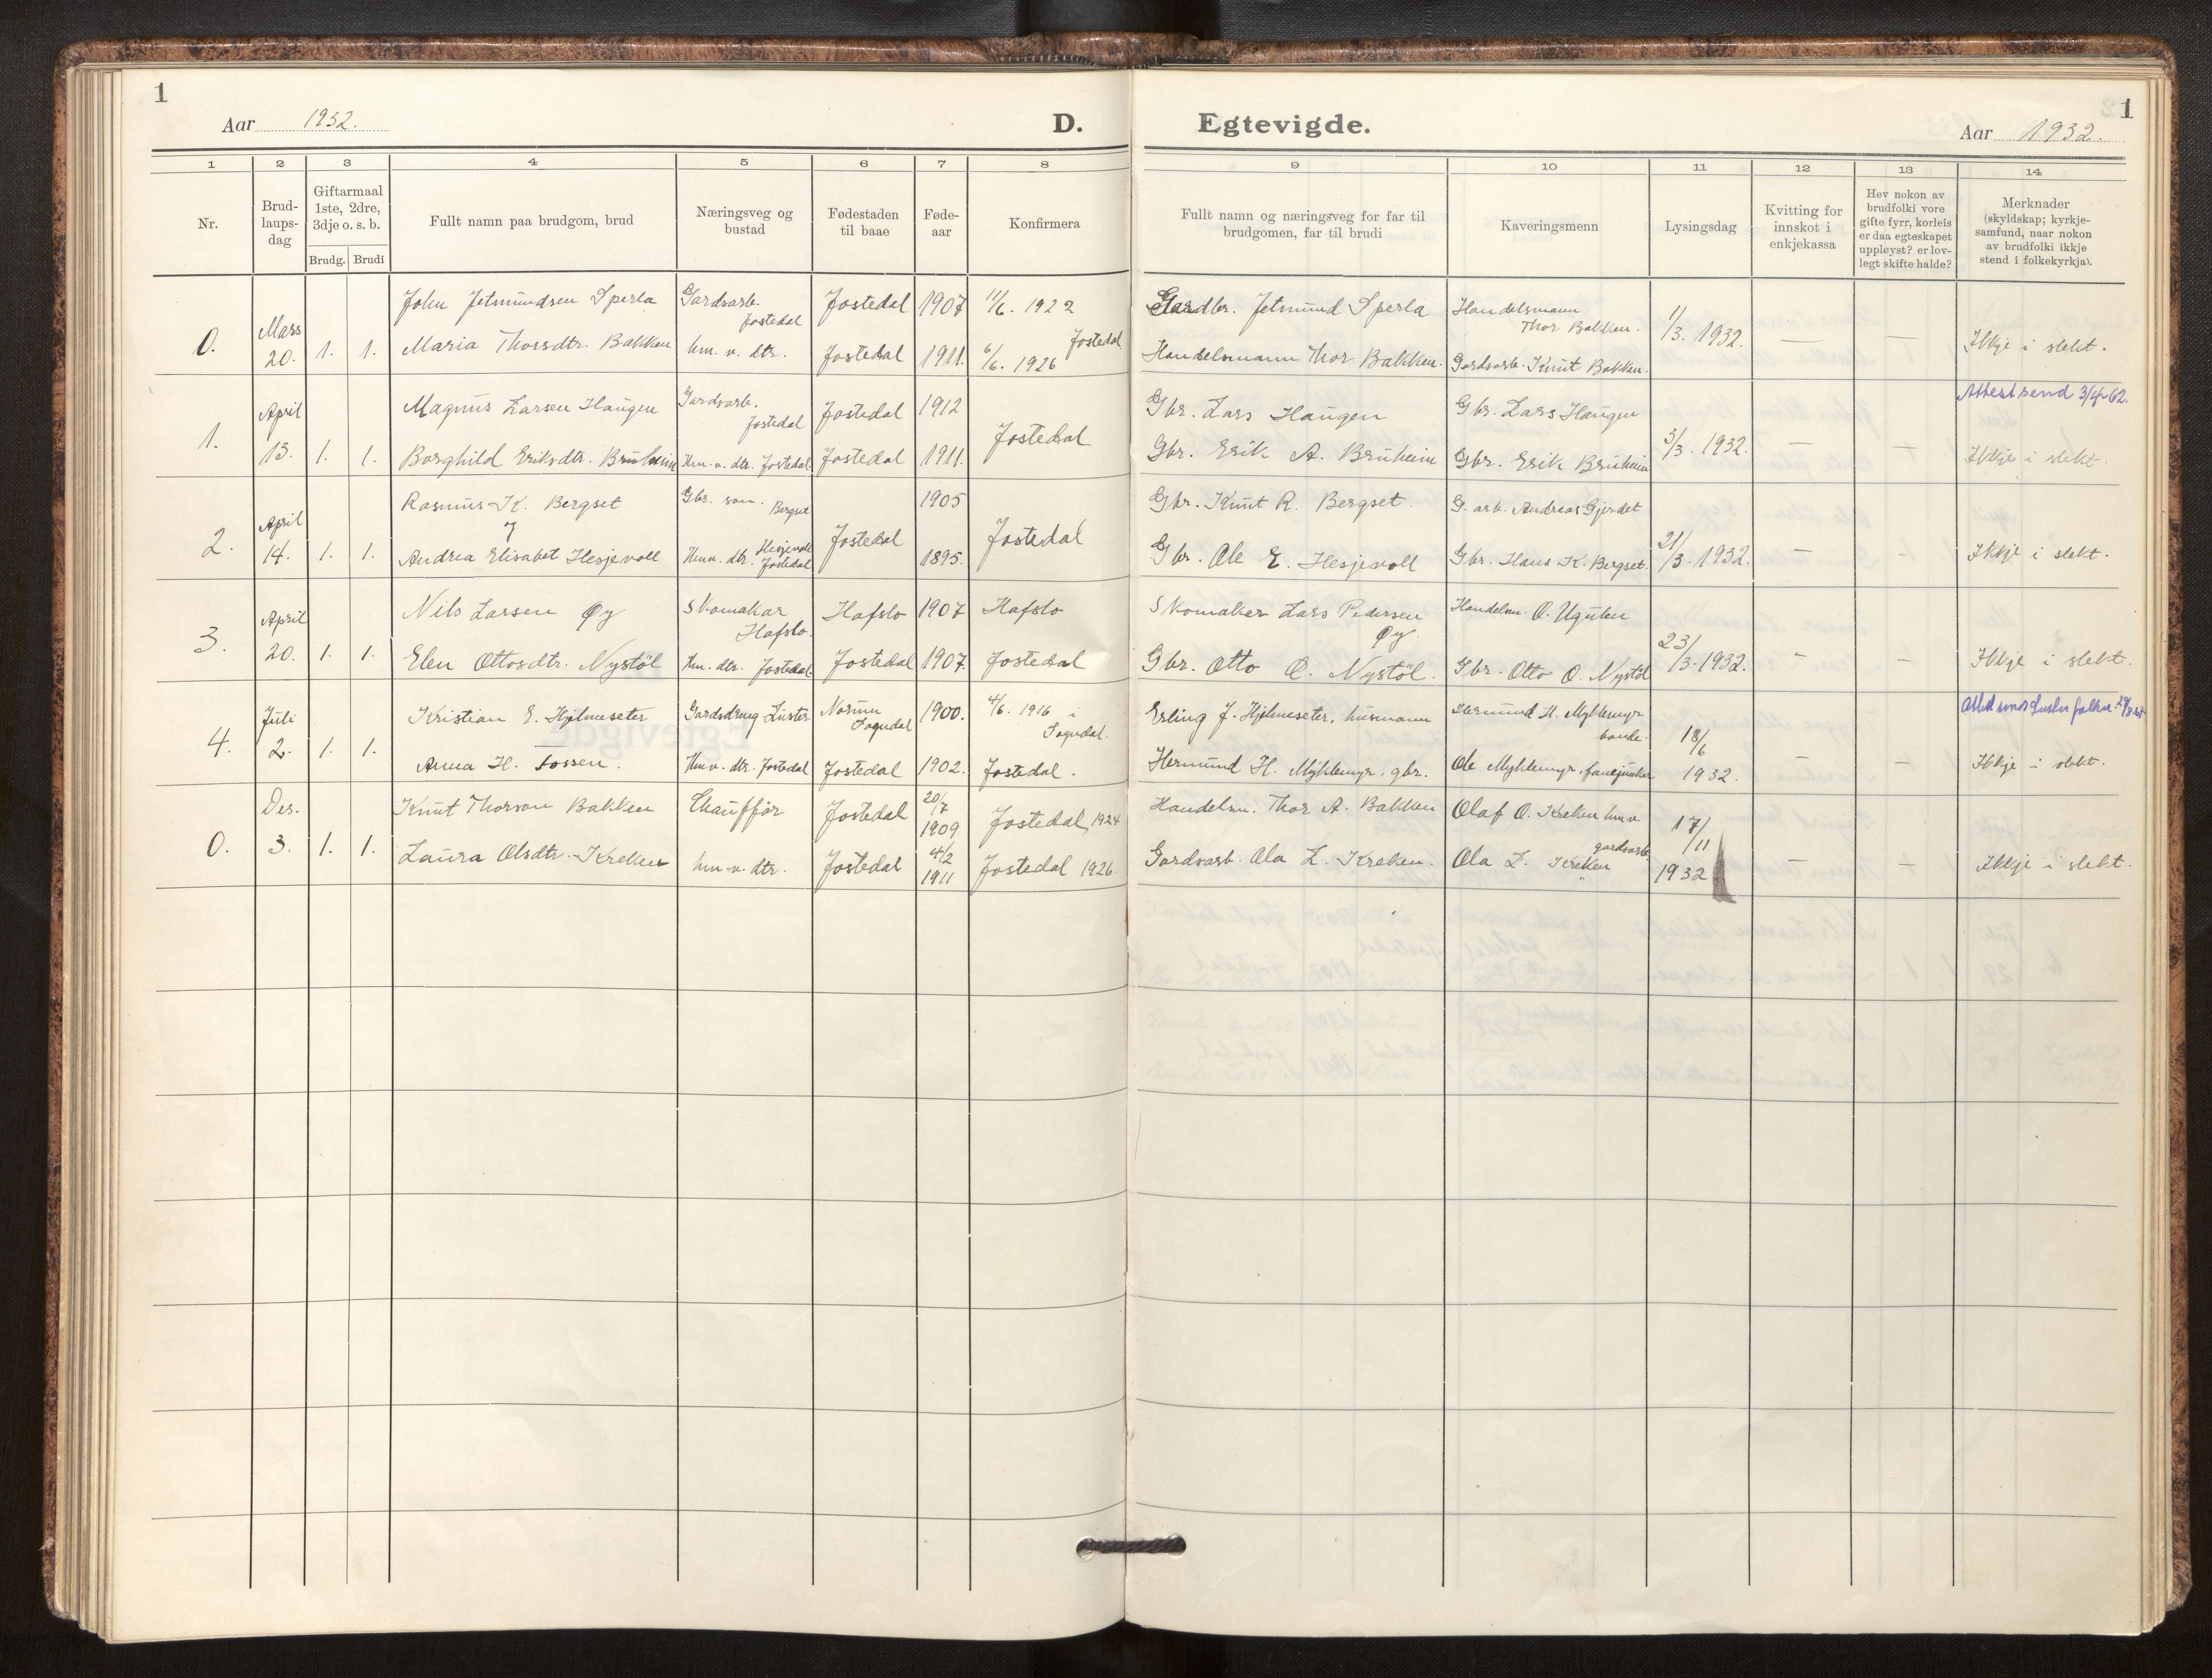 1
Aar 1932.
D.
1 2 3 4 5 6 7 8
Nr.
Brud-
laups-
dag
Giftarmaal
1ste, 2dre,
3dje o. s. b.
Brudg. Brudi
Fullt namn paa brudgom, brud
Næringsveg og
bustad
Fødestaden
til baae
Føde-
aar
Konfirmera
0. Mars 20. 1. 1.
John Jetmundsen Sperla Gardsarb. Jostedal Jostedal 1907 11/6. 1922
Maria Thorsdtr. Bakken hm. v. dtr. Jostedal 1911. 6/6. 1926 Jostedal
1. April 13. 1. 1.
Magnus Larsen Haugen Gardsarb. Jostedal Jostedal 1912
Borghild Eriksdtr. Bruheim Hm. v. dtr. Jostedal Jostedal 1911. Jostedal
2. April 14. 1. 1.
Rasmus K. Bergset Gbr. son. Bergset 1905
Andrea Elisabet Hesjevoll Hm v. dtr. Hesjevoll Jostedal Jostedal 1895. Jostedal
3. April 20. 1. 1.
Nils Larsen Øy Skomakar Hafslo. Hafslo 1907 Hafslo
Elen Ottosdtr. Nystöl Hm. dtr. Jostedal. Jostedal 1907. Jostedal
4. Juli 2. 1. 1.
Kristian E. Hjelmeseter Gardsdreng Luster Norum Sogndal 1900. 4/6. 1916 i Sogndal.
Anna H. Fossen. Hm v. dtr. Jostedal Jostedal 1902. Jostedal.
0. Des. 3. 1. 1.
Knut Thorson Bakken Chauffør Jostedal 20/7 1909 Jostedal 1924
Laura Olsdtr. Kreken hm. v. dtr. Jostedal 4/2 1911 Jostedal 1926
1
Egtevigde.
Aar 1932.
9 10 11 12 13 14
Fullt namn og næringsveg for far til
brudgomen, far til brudi
Kaveringsmenn
Lysingsdag
Kvitting for
innskot i
enkjekassa
Hev nokon av
brudfolki vore
gifte fyrr, korleis
er daa egteskapet
uppløyst? er lov-
legt skifte halde?
Merknader
(skyldskap; kyrkje-
samfund, naar nokon
av brudfolki ikkje
stend i folkekyrkja).
Gardbr. Jetmund Sperla Handelsmann Thor Bakken. 1/3. 1932. — —
Handelsmann Thor Bakken. Gardsarb. Knut Bakken. Ikkje i slekt.
Attest send 3/4-62.
Gbr. Lars Haugen Gbr. Lars Haugen
Gbr. Erik A. Bruheim Gbr. Erik Bruheim 3/3. 1932. — — Ikkje i slekt.
Gbr. Knut R. Bergset. G. arb. Andreas Gjerdet
Gbr. Ole E. Hesjevoll Gbr. Hans K. Bergset. 21/3. 1932. — - Ikkje i slekt.
Skomaker Lars Pedersen Øy. Handelsm. O. Ugulen
Gbr. Otto O. Nystöl. Gbr. Otto O. Nystöl 23/3. 1932. - — Ikkje i slekt.
Erling J. Hjelmeseter, husmann Hermund H. Myklemyr bonde.
Hermund H. Myklemyr, gbr. Ole Myklemyr, fanejunker 18/6 1932. — — Ikkje i slekt.
Handelsm. Thor A. Bakken Olaf O. Kreken hm v.
Gardsarb. Ola L. Kreken. Ola L. Kreken gardsarb. 17/11 1932 — — Ikkje i slekt.